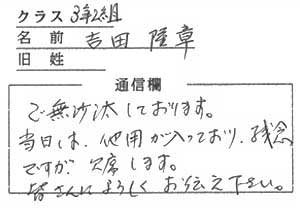 クラス 3年2組
名前 吉田 陸章
旧姓
通信欄
ご無沙汰しております。
当日は、他用が入っており、残念
ですが、欠席します。
皆さんによろしくお伝え下さい。